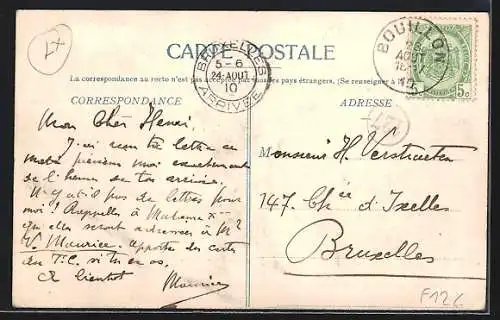 CARTE POSTALE
La correspondance au recto n'est pas acceptée par tous les pays étrangers. (Se renseigner à
CORRESPONDANCE
ADRESSE
BRUXELLES
5-6
24-AOUT
10
ARRIVÉE
BOUILLON
AOUT
10
5c
Mon Cher Henri,
J'ai reçu ta lettre ce
matin préviens moi exactement
de l'heure de ton arrivée.
N'y a-t-il pas de lettres pour
moi? Rappelles à Madame X
qu'elles seront adressées à Mr
V. Maurice. apporte des cartes
du T.C. si tu en as.
A bientôt
Maurice
Monsieur H. Verstraeten
147. Chée d'Ixelles
Bruxelles
F12€